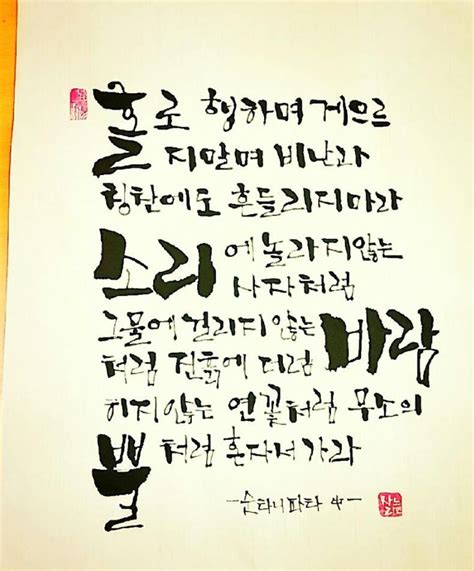 홀로 행하며 게으르
지말며 비난과
칭찬에도 흔들리지마라
소리에 놀라지않는
사자처럼
그물에 걸리지않는 바람
처럼 진흙에 더럽
히지않는 연꽃처럼 무소의
뿔처럼 혼자서 가라
-숫타니파타 中-